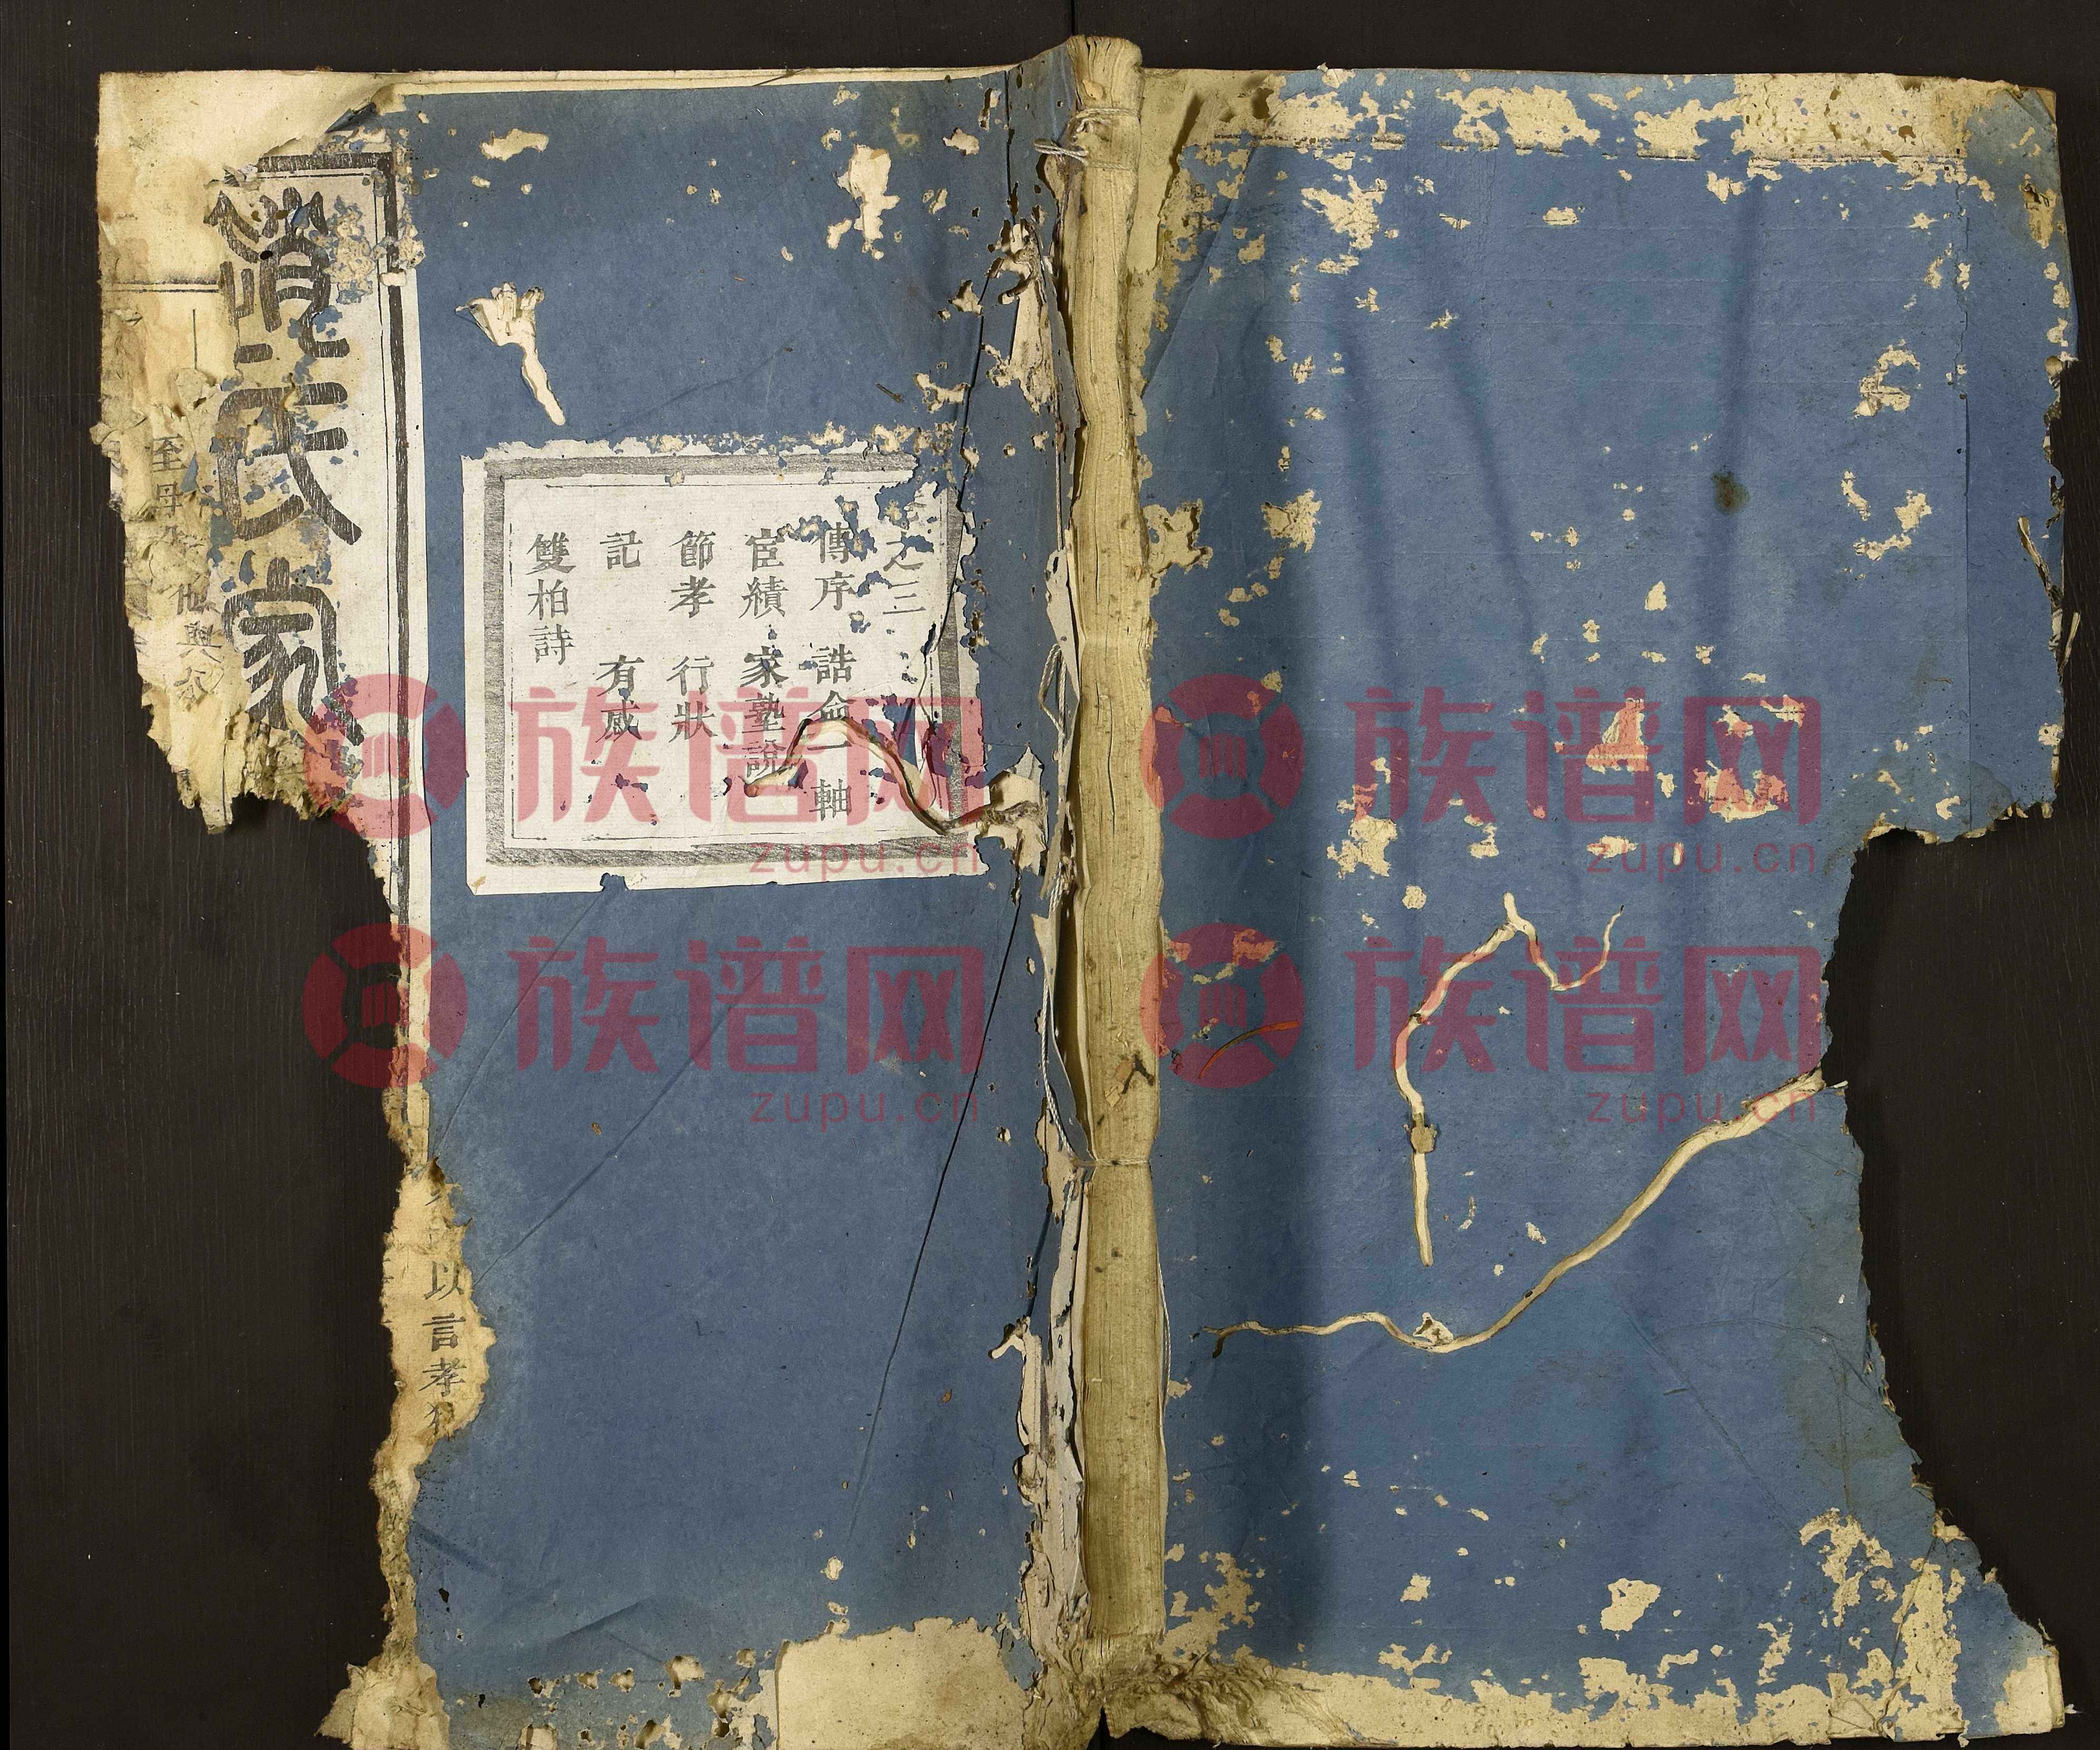 氏家
之三
傳序 誥命一軸
宦績 家塾說
節孝 行狀
記 有感
雙柏詩
至母
他與
以言孝
族谱网
zupu.cn
族谱网
zupu.cn
族谱网
zupu.cn
族谱网
zupu.cn